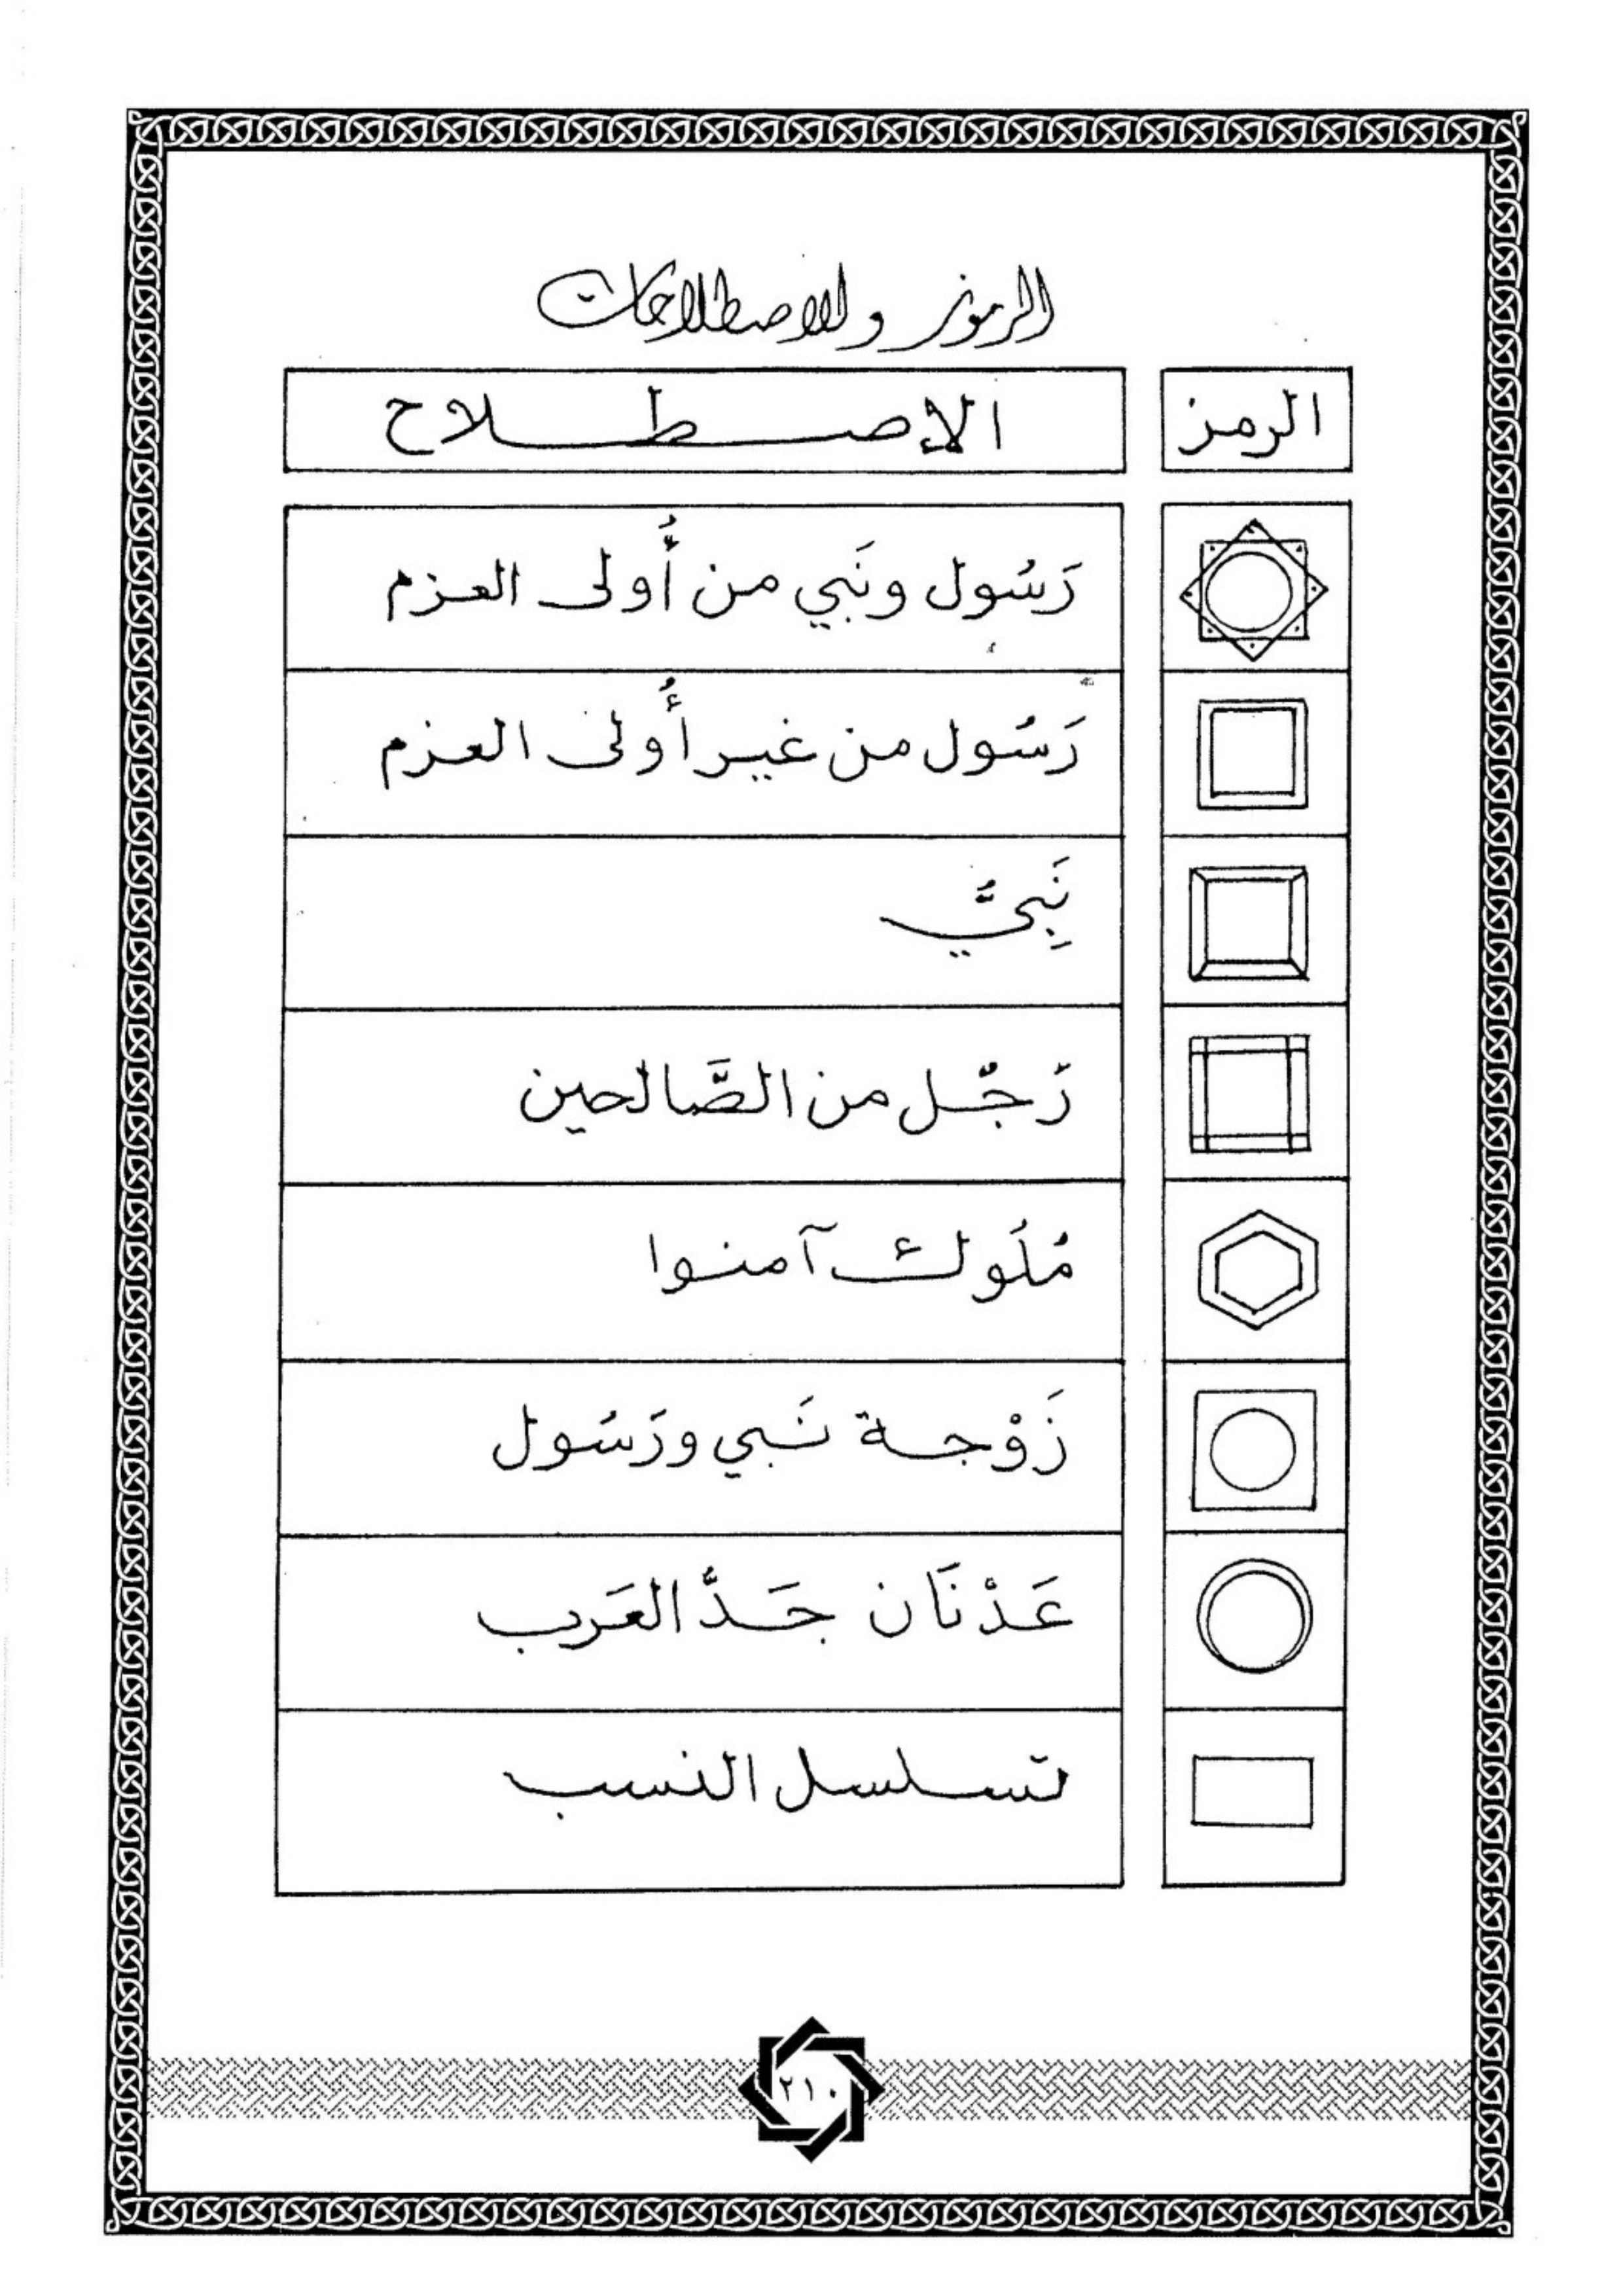 الرموز والاصطلاحات
الرمز الإصطلاح
رَسُول ونَبي من أُولى العزم
رَسُول من غير أُولى العزم
نَبِيَّ
رَجُل من الصَّالحين
مُلُوك آمنوا
زَوْجة نَبي ورَسُول
عَدْنَان جَدَّ العَرب
تسلسل النسب
٢١٠